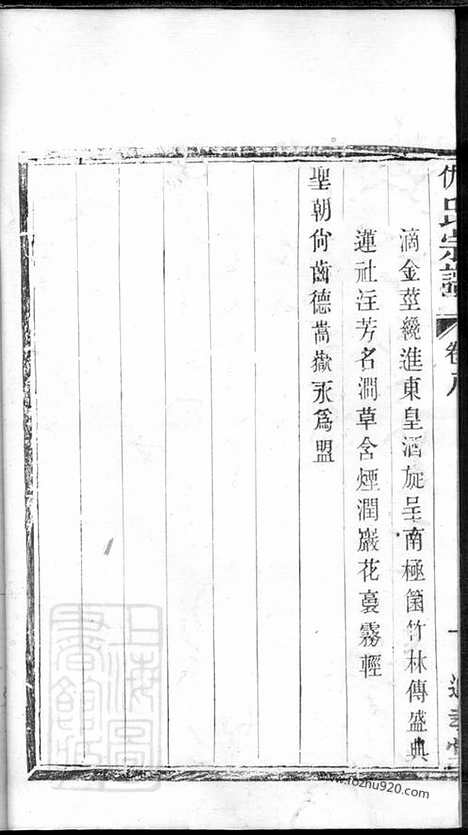 氏宗譜 卷八
滴金莖纔進東皇酒旋呈南極箇竹林傳盛典
蓮社注芳名澗草含煙潤巖花裛霧輕
聖朝尙齒德嵩嶽永爲盟
上海圖書館藏
www.fozhu920.com